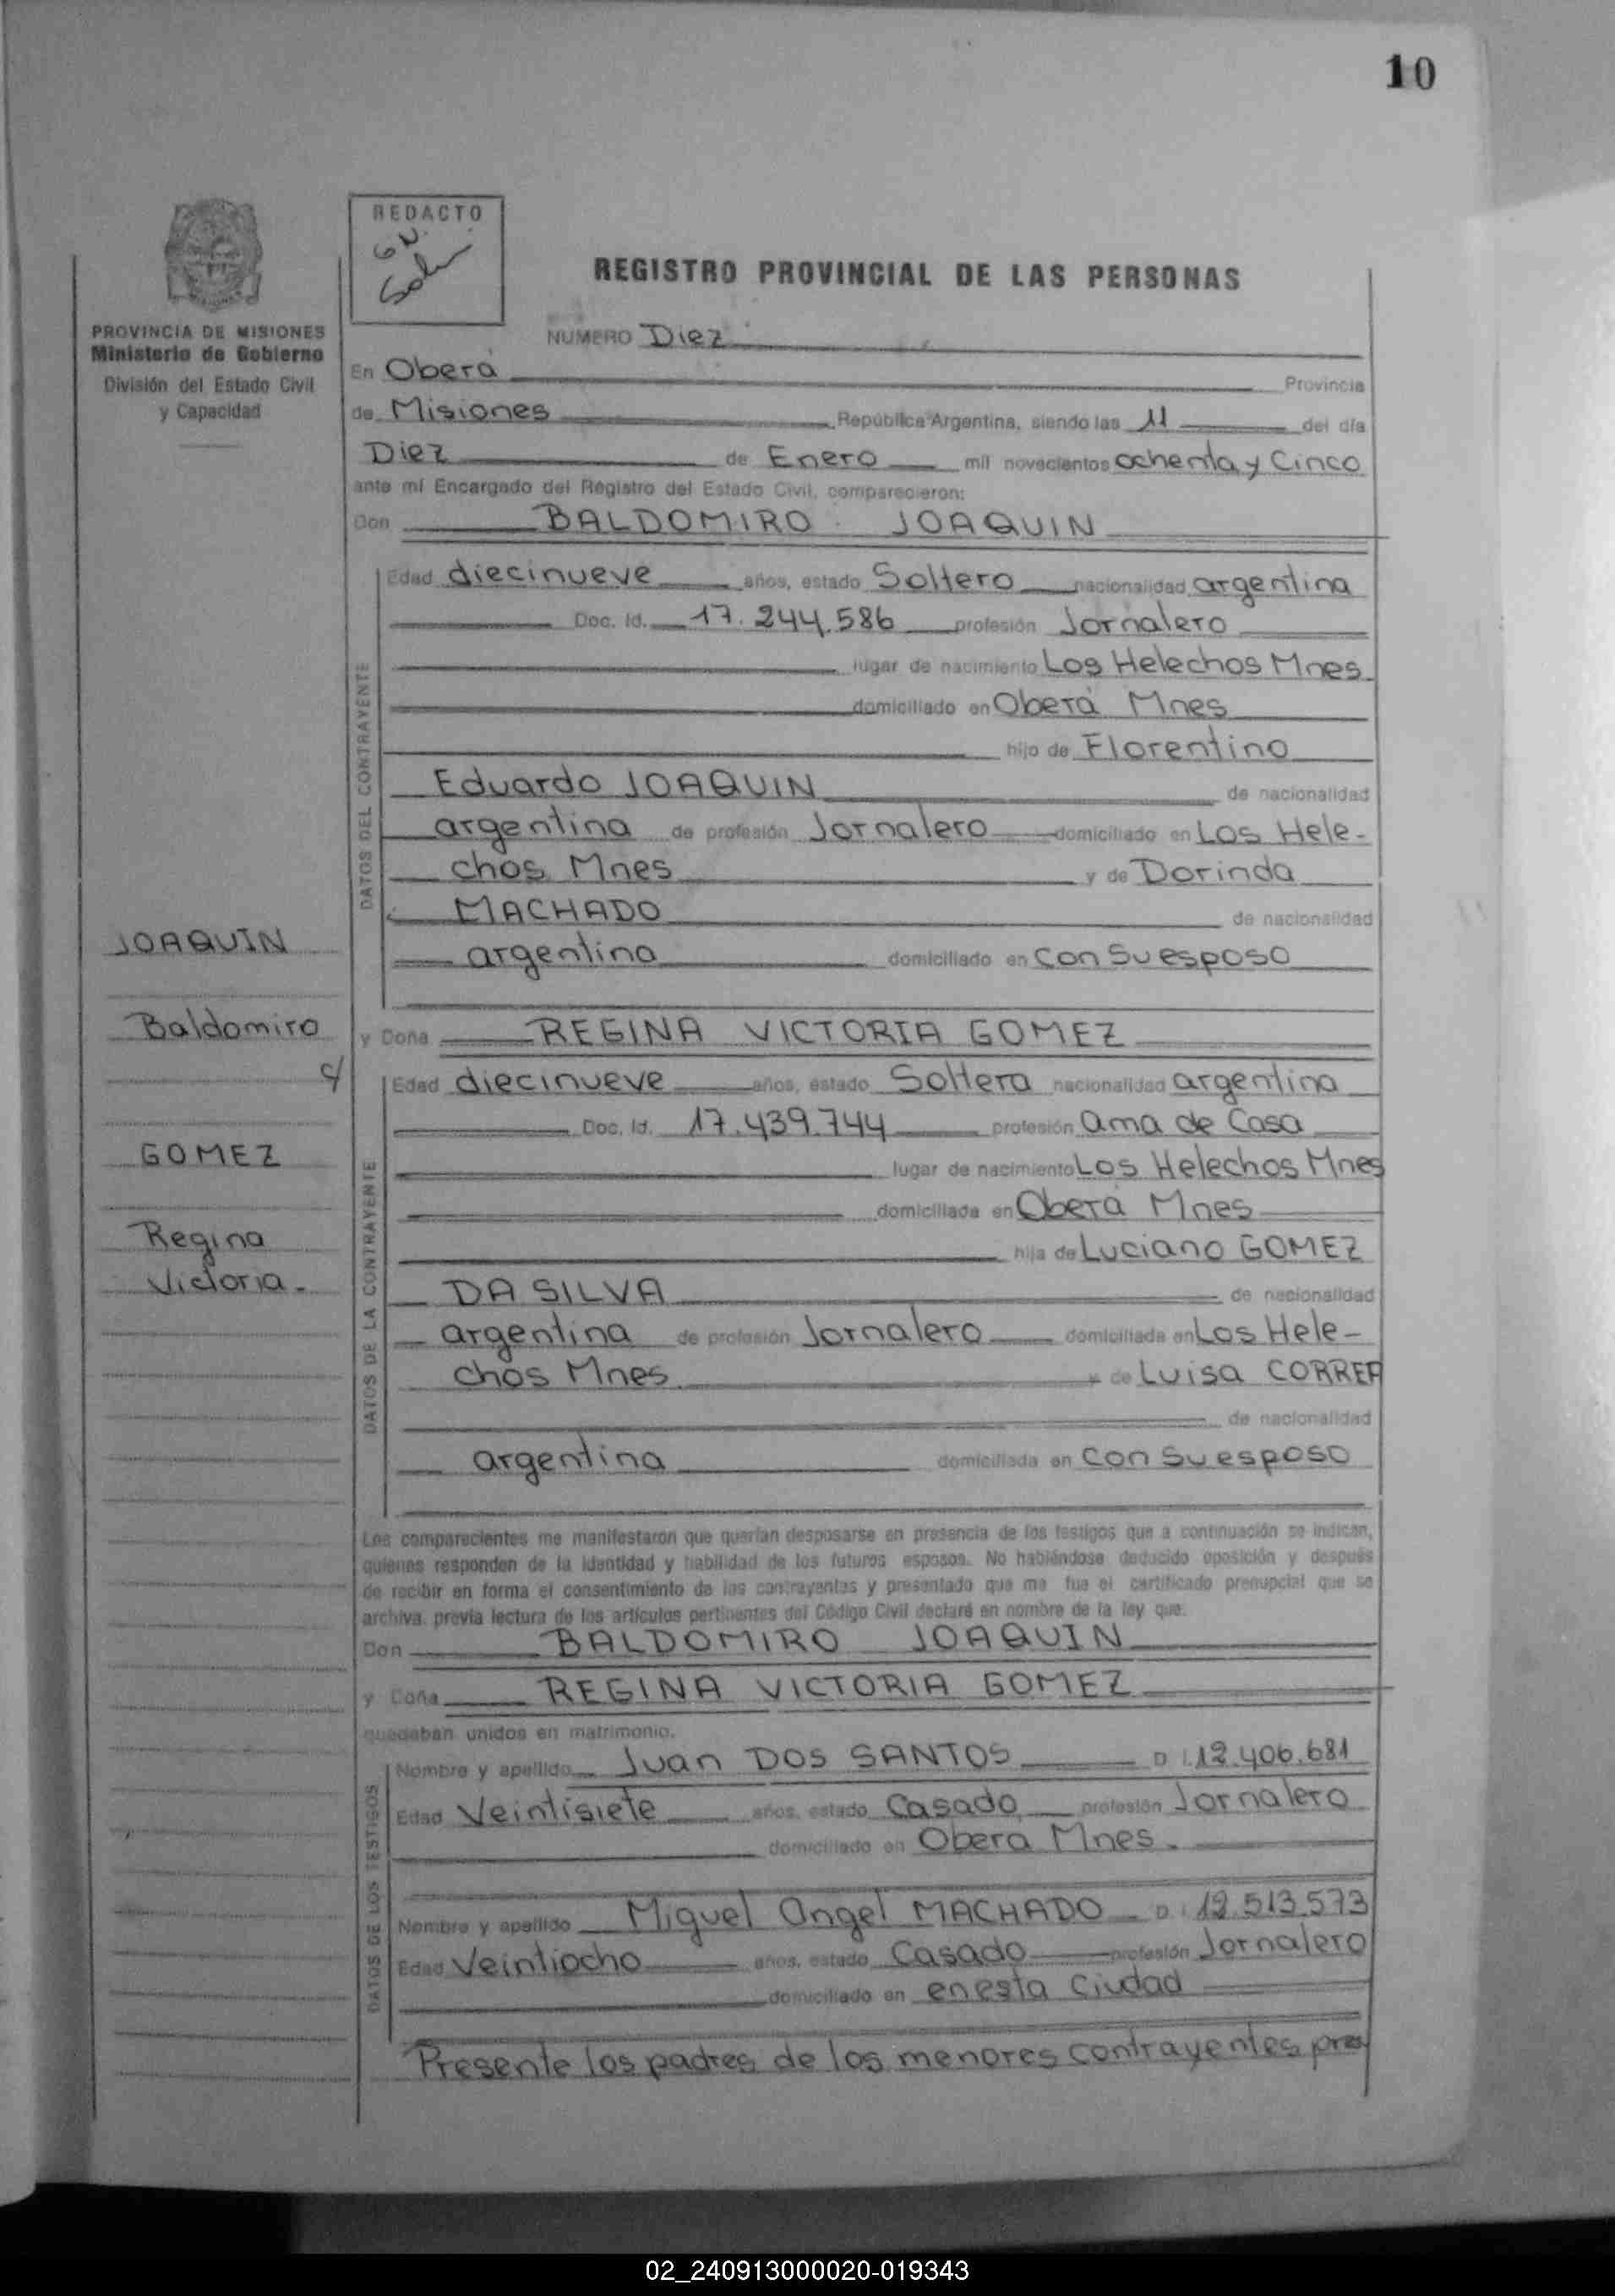 10
REDACTO
REGISTRO PROVINCIAL DE LAS PERSONAS
PROVINCIA DE MISIONES
Ministerio de Gobierno
División del Estado Civil
y Capacidad
NUMERO Diez
En Oberá Provincia
de Misiones República Argentina, siendo las 11 del día
Diez de Enero mil novecientos ochenta y Cinco
ante mí Encargado del Registro del Estado Civil, comparecieron:
Don BALDOMIRO JOAQUIN
DATOS DEL CONTRAYENTE
Edad diecinueve años, estado Soltero nacionalidad argentina
Doc. Id. 17.244.586 profesión Jornalero
lugar de nacimiento Los Helechos Mnes
domiciliado en Oberá Mnes
hijo de Florentino
Eduardo JOAQUIN de nacionalidad
argentina de profesión Jornalero domiciliado en Los Hele-
chos Mnes y de Dorinda
MACHADO de nacionalidad
argentina domiciliado en con su esposo
JOAQUIN
Baldomiro
c/
GOMEZ
Regina
Victoria.
y Doña REGINA VICTORIA GOMEZ
DATOS DE LA CONTRAYENTE
Edad diecinueve años, estado Soltera nacionalidad argentina
Doc. Id. 17.439.744 profesión ama de Casa
lugar de nacimiento Los Helechos Mnes
domiciliada en Oberá Mnes
hija de Luciano GOMEZ
DA SILVA de nacionalidad
argentina de profesión Jornalero domiciliada en Los Hele-
chos Mnes y de Luisa CORREA
de nacionalidad
argentina domiciliada en con su esposo
Los comparecientes me manifestaron que querían desposarse en presencia de los testigos que a continuación se indican,
quienes responden de la identidad y habilidad de los futuros esposos. No habiéndose deducido oposición y después
de recibir en forma el consentimiento de los contrayentes y presentado que me fue el certificado prenupcial que se
archiva. previa lectura de los artículos pertinentes del Código Civil declaré en nombre de la ley que.
Don BALDOMIRO JOAQUIN
y Doña REGINA VICTORIA GOMEZ
quedaban unidos en matrimonio.
DATOS DE LOS TESTIGOS
Nombre y apellido Juan DOS SANTOS D.I. 12.406.681
Edad Veintisiete años, estado Casado profesión Jornalero
domiciliado en Oberá Mnes.
Nombre y apellido Miguel Angel MACHADO D.I. 12.513.573
Edad Veintiocho años, estado Casado profesión Jornalero
domiciliado en en esta Ciudad
Presente los padres de los menores contrayentes
02_240913000020-019343